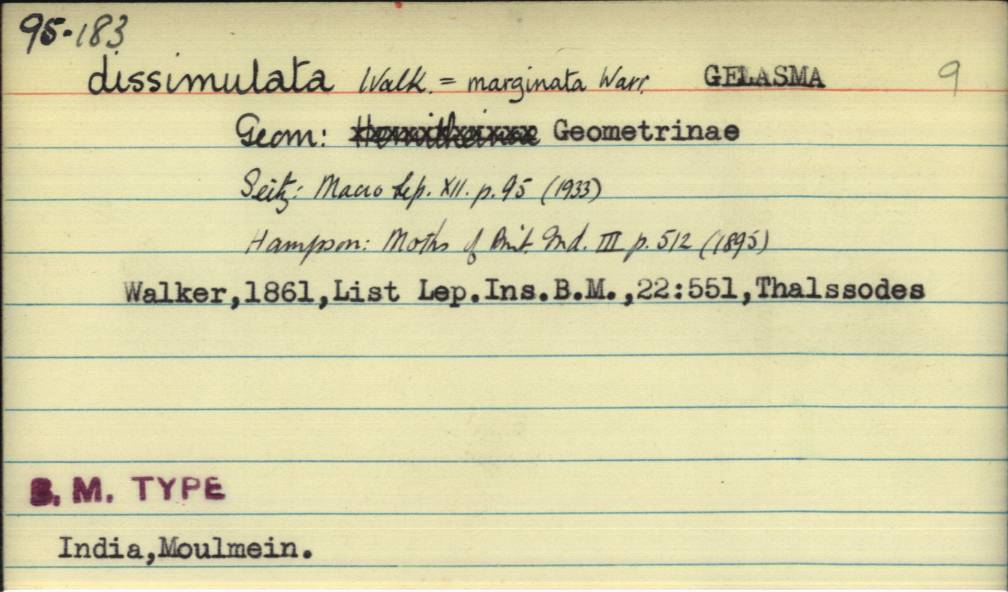 95-183
dissimulata Walk. = marginata Warr. GELASMA 9
Geom: Hemitheinae Geometrinae
Seitz: Macro Lep. XII. p. 95 (1933)
Hampson: Moths of Brit. Ind. III p. 512 (1895)
Walker,1861,List Lep.Ins.B.M.,22:551,Thalssodes
B. M. TYPE
India,Moulmein.